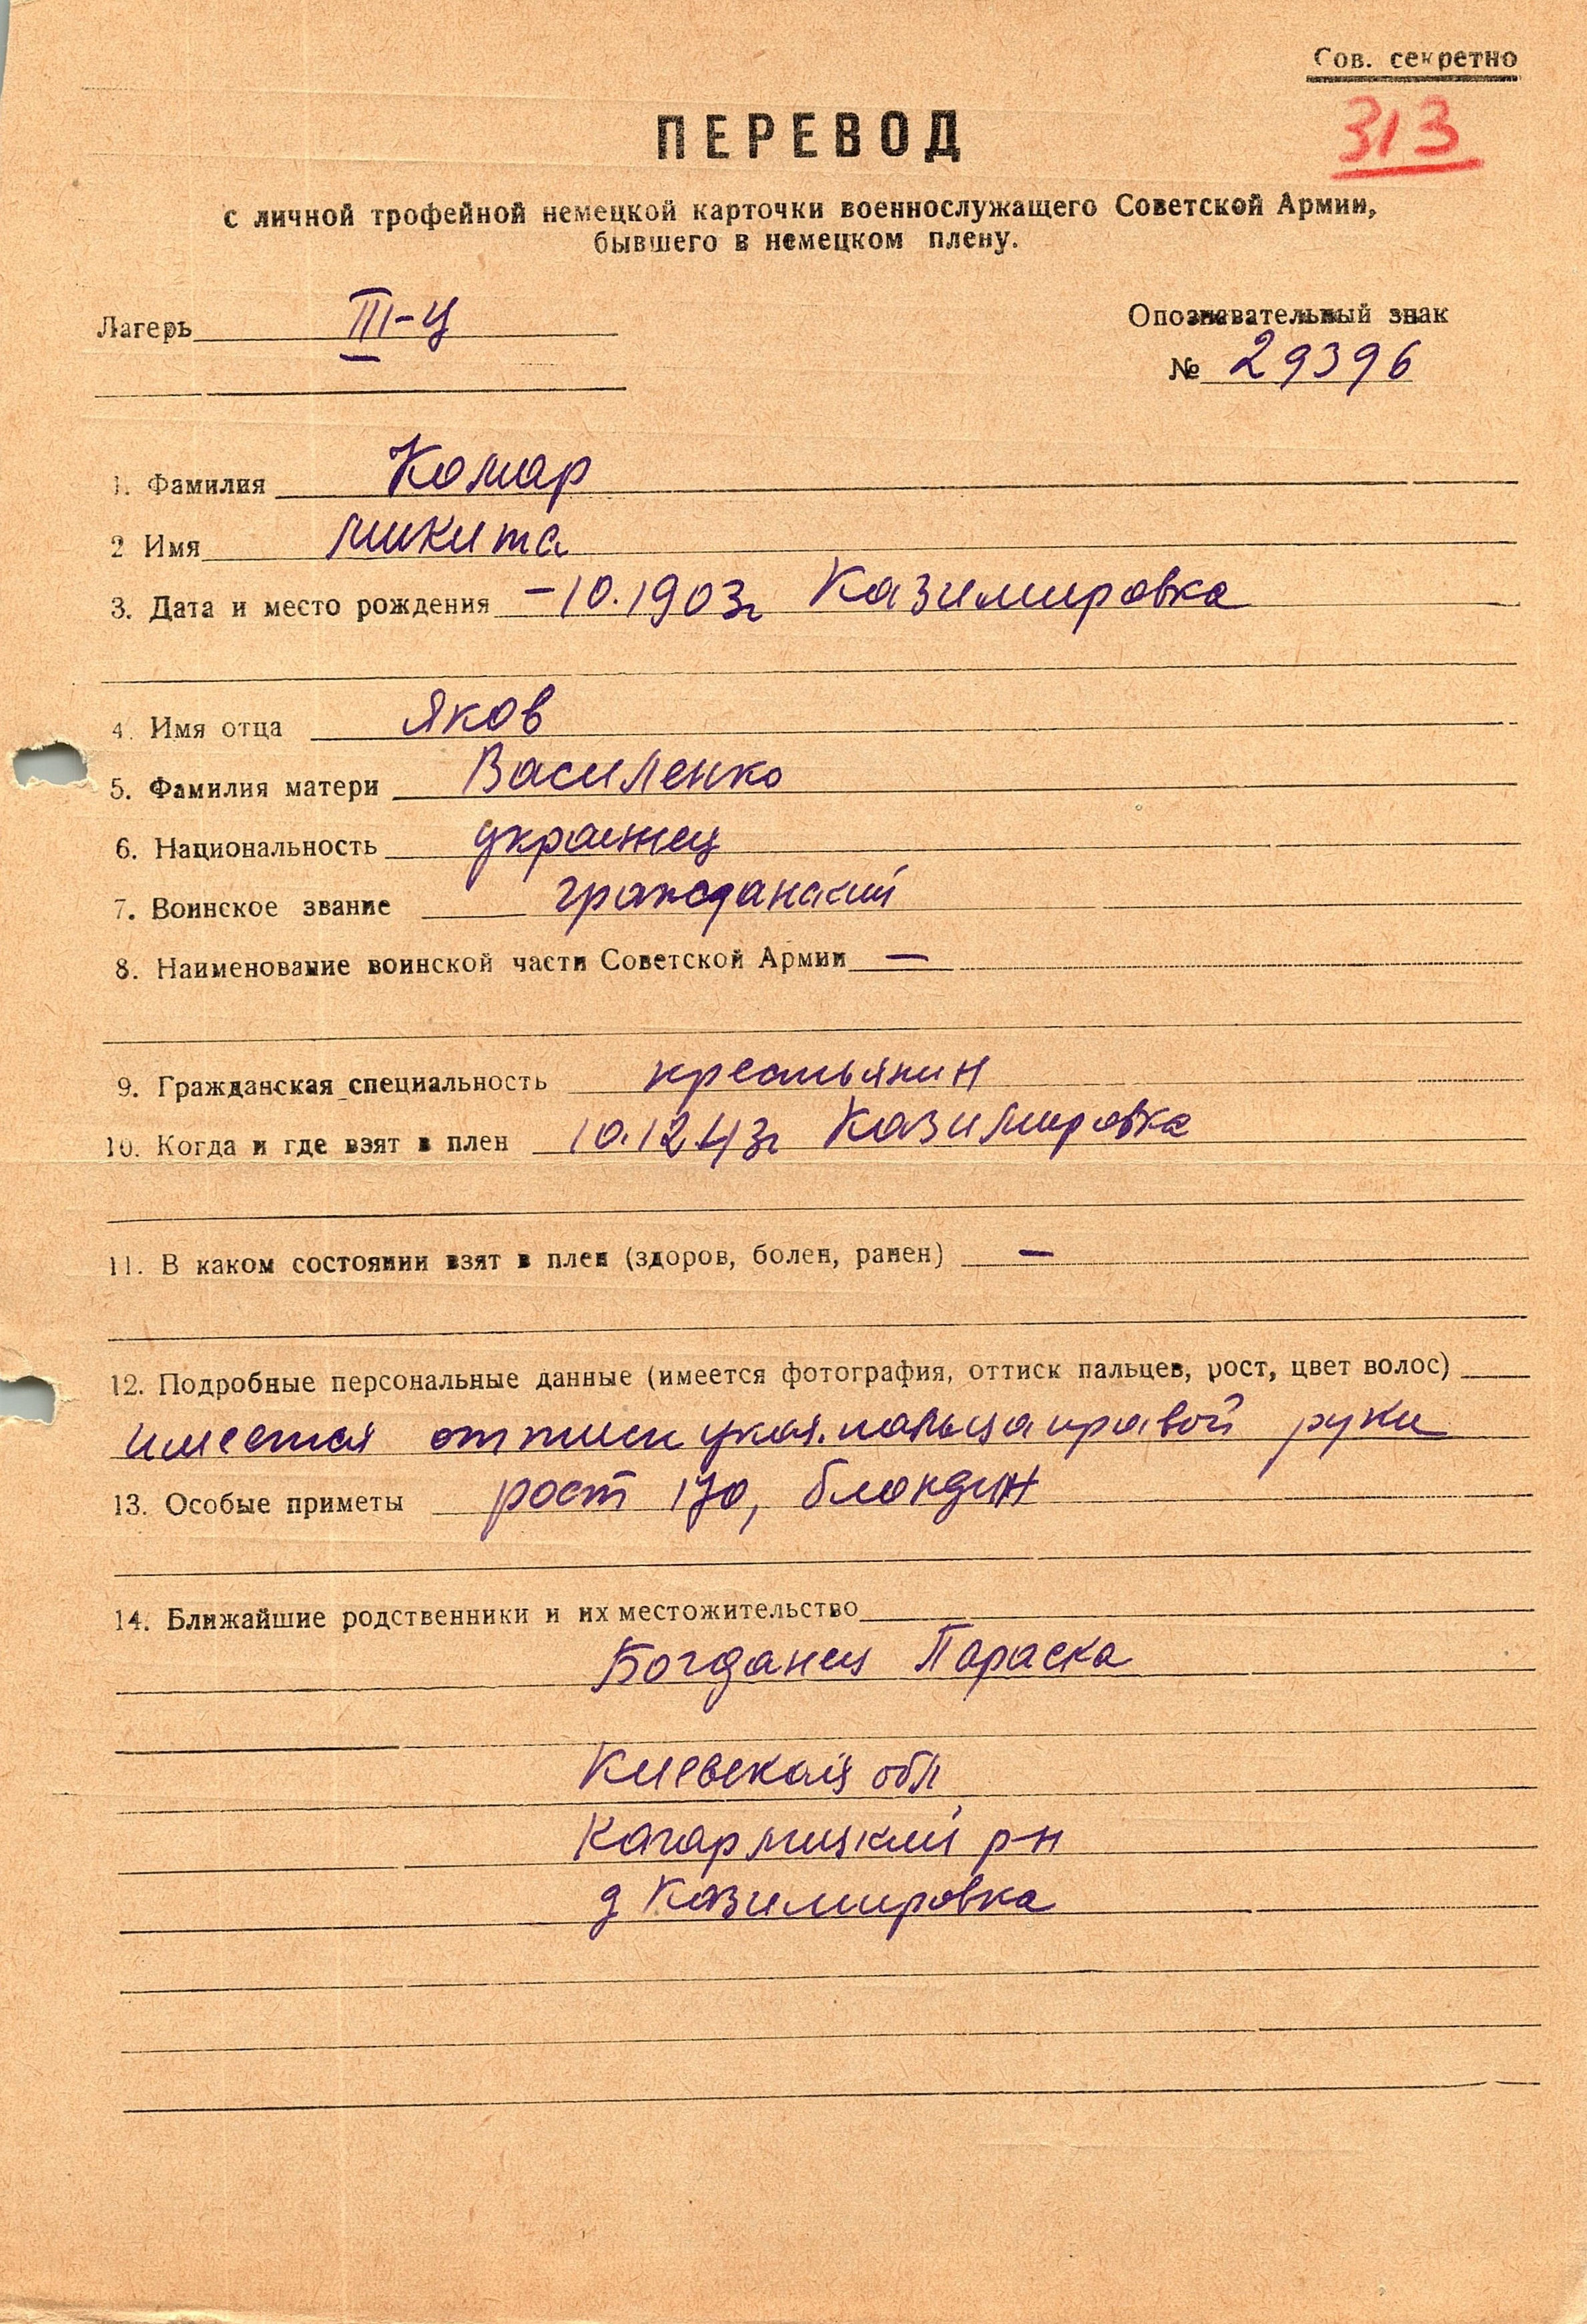 Сов. секретно
313
ПЕРЕВОД
с личной трофейной немецкой карточки военнослужащего Советской Армии,
бывшего в немецком плену.
Лагерь III-Ц
Опознавательный знак
№ 29396
1. Фамилия Комар
2 Имя Микита
3. Дата и место рождения -10.1903г Казимировка
4. Имя отца Яков
5. Фамилия матери Василенко
6. Национальность украинец
7. Воинское звание гражданский
8. Наименование воинской части Советской Армии —
9. Гражданская специальность крестьянин
10. Когда и где взят в плен 10.12.43г Казимировка
11. В каком состоянии взят в плен (здоров, болен, ранен) —
12. Подробные персональные данные (имеется фотография, оттиск пальцев, рост, цвет волос)
имеется оттиск указ. пальца правой руки
13. Особые приметы рост 170, блондин
14. Ближайшие родственники и их местожительство
Богданец Параска
Киевской обл
Кагарлицкий р-н
д Казимировка